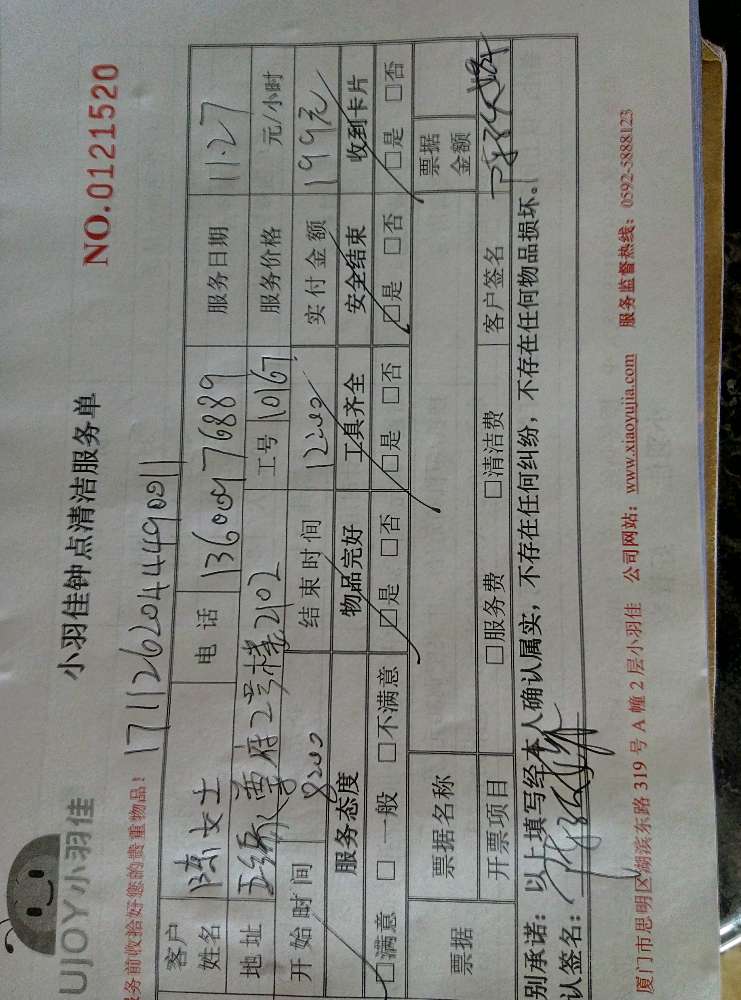 UJOY小羽佳
小羽佳钟点清洁服务单
NO.0121520
务前收拾好您的贵重物品!
客户姓名 陈女士 电话 13600976889 服务日期 11.27
地址 2号楼2102 工号 1067 服务价格 元/小时
开始时间 8:00 结束时间 12:00 实付金额 199元
服务态度 物品完好 工具齐全 安全结束 收到卡片
□满意 □一般 □不满意 □是 □否 □是 □否 □是 □否 □是 □否
票据 票据名称 票据金额
开票项目 □服务费 □清洁费 客户签名
别承诺:以上填写经本人确认属实,不存在任何纠纷,不存在任何物品损坏。
认签名:
厦门市思明区湖滨东路 319 号 A 幢 2 层小羽佳 公司网站:www.xiaoyujia.com 服务监督热线:0592-5888123